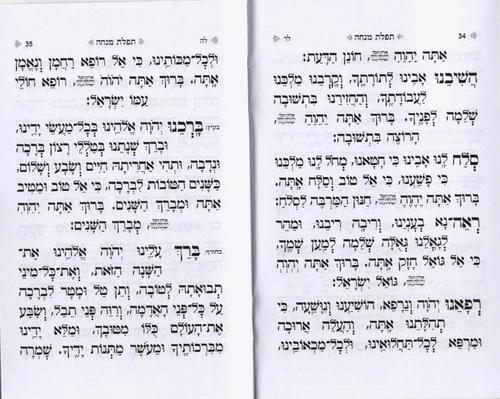 34 תפלת מנחה לד
אַתָּה יְהֹוָה חוֹנֵן הַדָּעַת:
הֲשִׁיבֵנוּ אָבִינוּ לְתוֹרָתֶךָ, וְקָרְבֵנוּ מַלְכֵּנוּ
לַעֲבוֹדָתֶךָ, וְהַחֲזִירֵנוּ בִּתְשׁוּבָה
שְׁלֵמָה לְפָנֶיךָ. בָּרוּךְ אַתָּה יְהֹוָה
הָרוֹצֶה בִּתְשׁוּבָה:
סְלַח לָנוּ אָבִינוּ כִּי חָטָאנוּ, מְחֹל לָנוּ מַלְכֵּנוּ
כִּי פָשָׁעְנוּ, כִּי אֵל טוֹב וְסַלָּח אָתָּה.
בָּרוּךְ אַתָּה יְהֹוָה, חַנּוּן הַמַּרְבֶּה לִסְלֹחַ:
רְאֵה־נָא בְעָנְיֵנוּ, וְרִיבָה רִיבֵנוּ, וּמַהֵר
לְגָאֳלֵנוּ גְאֻלָּה שְׁלֵמָה לְמַעַן שְׁמֶךָ,
כִּי אֵל גּוֹאֵל חָזָק אָתָּה. בָּרוּךְ אַתָּה יְהֹוָה
גּוֹאֵל יִשְׂרָאֵל:
רְפָאֵנוּ יְהֹוָה וְנֵרָפֵא, הוֹשִׁיעֵנוּ וְנִוָּשֵׁעָה, כִּי
תְהִלָּתֵנוּ אָתָּה, וְהַעֲלֵה אֲרוּכָה
וּמַרְפֵּא לְכָל־תַּחֲלוּאֵינוּ, וּלְכָל־מַכְאוֹבֵינוּ,
לה תפלת מנחה 35
וּלְכָל־מַכּוֹתֵינוּ, כִּי אֵל רוֹפֵא רַחֲמָן וְנֶאֱמָן
אָתָּה. בָּרוּךְ אַתָּה יְהֹוָה רוֹפֵא חוֹלֵי
עַמּוֹ יִשְׂרָאֵל:
בקיץ: בָּרְכֵנוּ יְהֹוָה אֱלֹהֵינוּ בְּכָל־מַעֲשֵׂי יָדֵינוּ,
וּבָרֵךְ שְׁנָתֵנוּ בְּטַלְלֵי רָצוֹן בְּרָכָה
וּנְדָבָה, וּתְהִי אַחֲרִיתָהּ חַיִּים וְשָׂבָע וְשָׁלוֹם,
כַּשָּׁנִים הַטּוֹבוֹת לִבְרָכָה, כִּי אֵל טוֹב וּמֵטִיב
אַתָּה וּמְבָרֵךְ הַשָּׁנִים. בָּרוּךְ אַתָּה יְהֹוָה
מְבָרֵךְ הַשָּׁנִים:
בחורף: בָּרֵךְ עָלֵינוּ יְהֹוָה אֱלֹהֵינוּ אֶת־
הַשָּׁנָה הַזֹּאת, וְאֶת־כָּל־מִינֵי
תְבוּאָתָהּ לְטוֹבָה, וְתֵן טַל וּמָטָר לִבְרָכָה
עַל כָּל־פְּנֵי הָאֲדָמָה, וְרַוֵּה פְּנֵי תֵבֵל, וְשַׂבַּע
אֶת־הָעוֹלָם כֻּלּוֹ מִטּוּבָךְ, וּמַלֵּא יָדֵינוּ
מִבִּרְכוֹתֶיךָ וּמֵעֹשֶׁר מַתְּנוֹת יָדֶיךָ. שָׁמְרָה